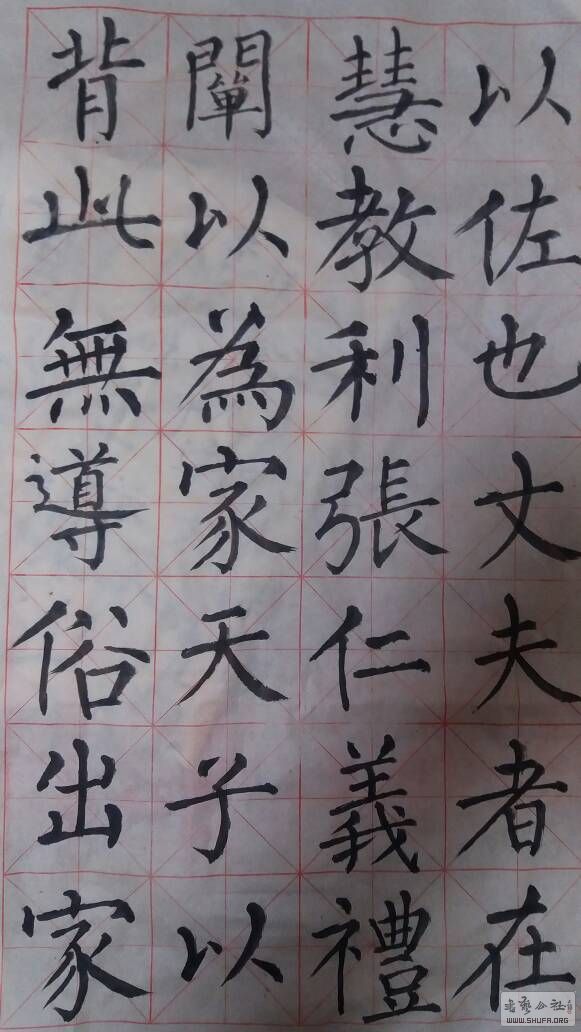 以佐也丈夫者在
慧教利張仁義禮
闡以為家天子以
背此無導俗出家
书艺公社
WWW.SHUFA.ORG